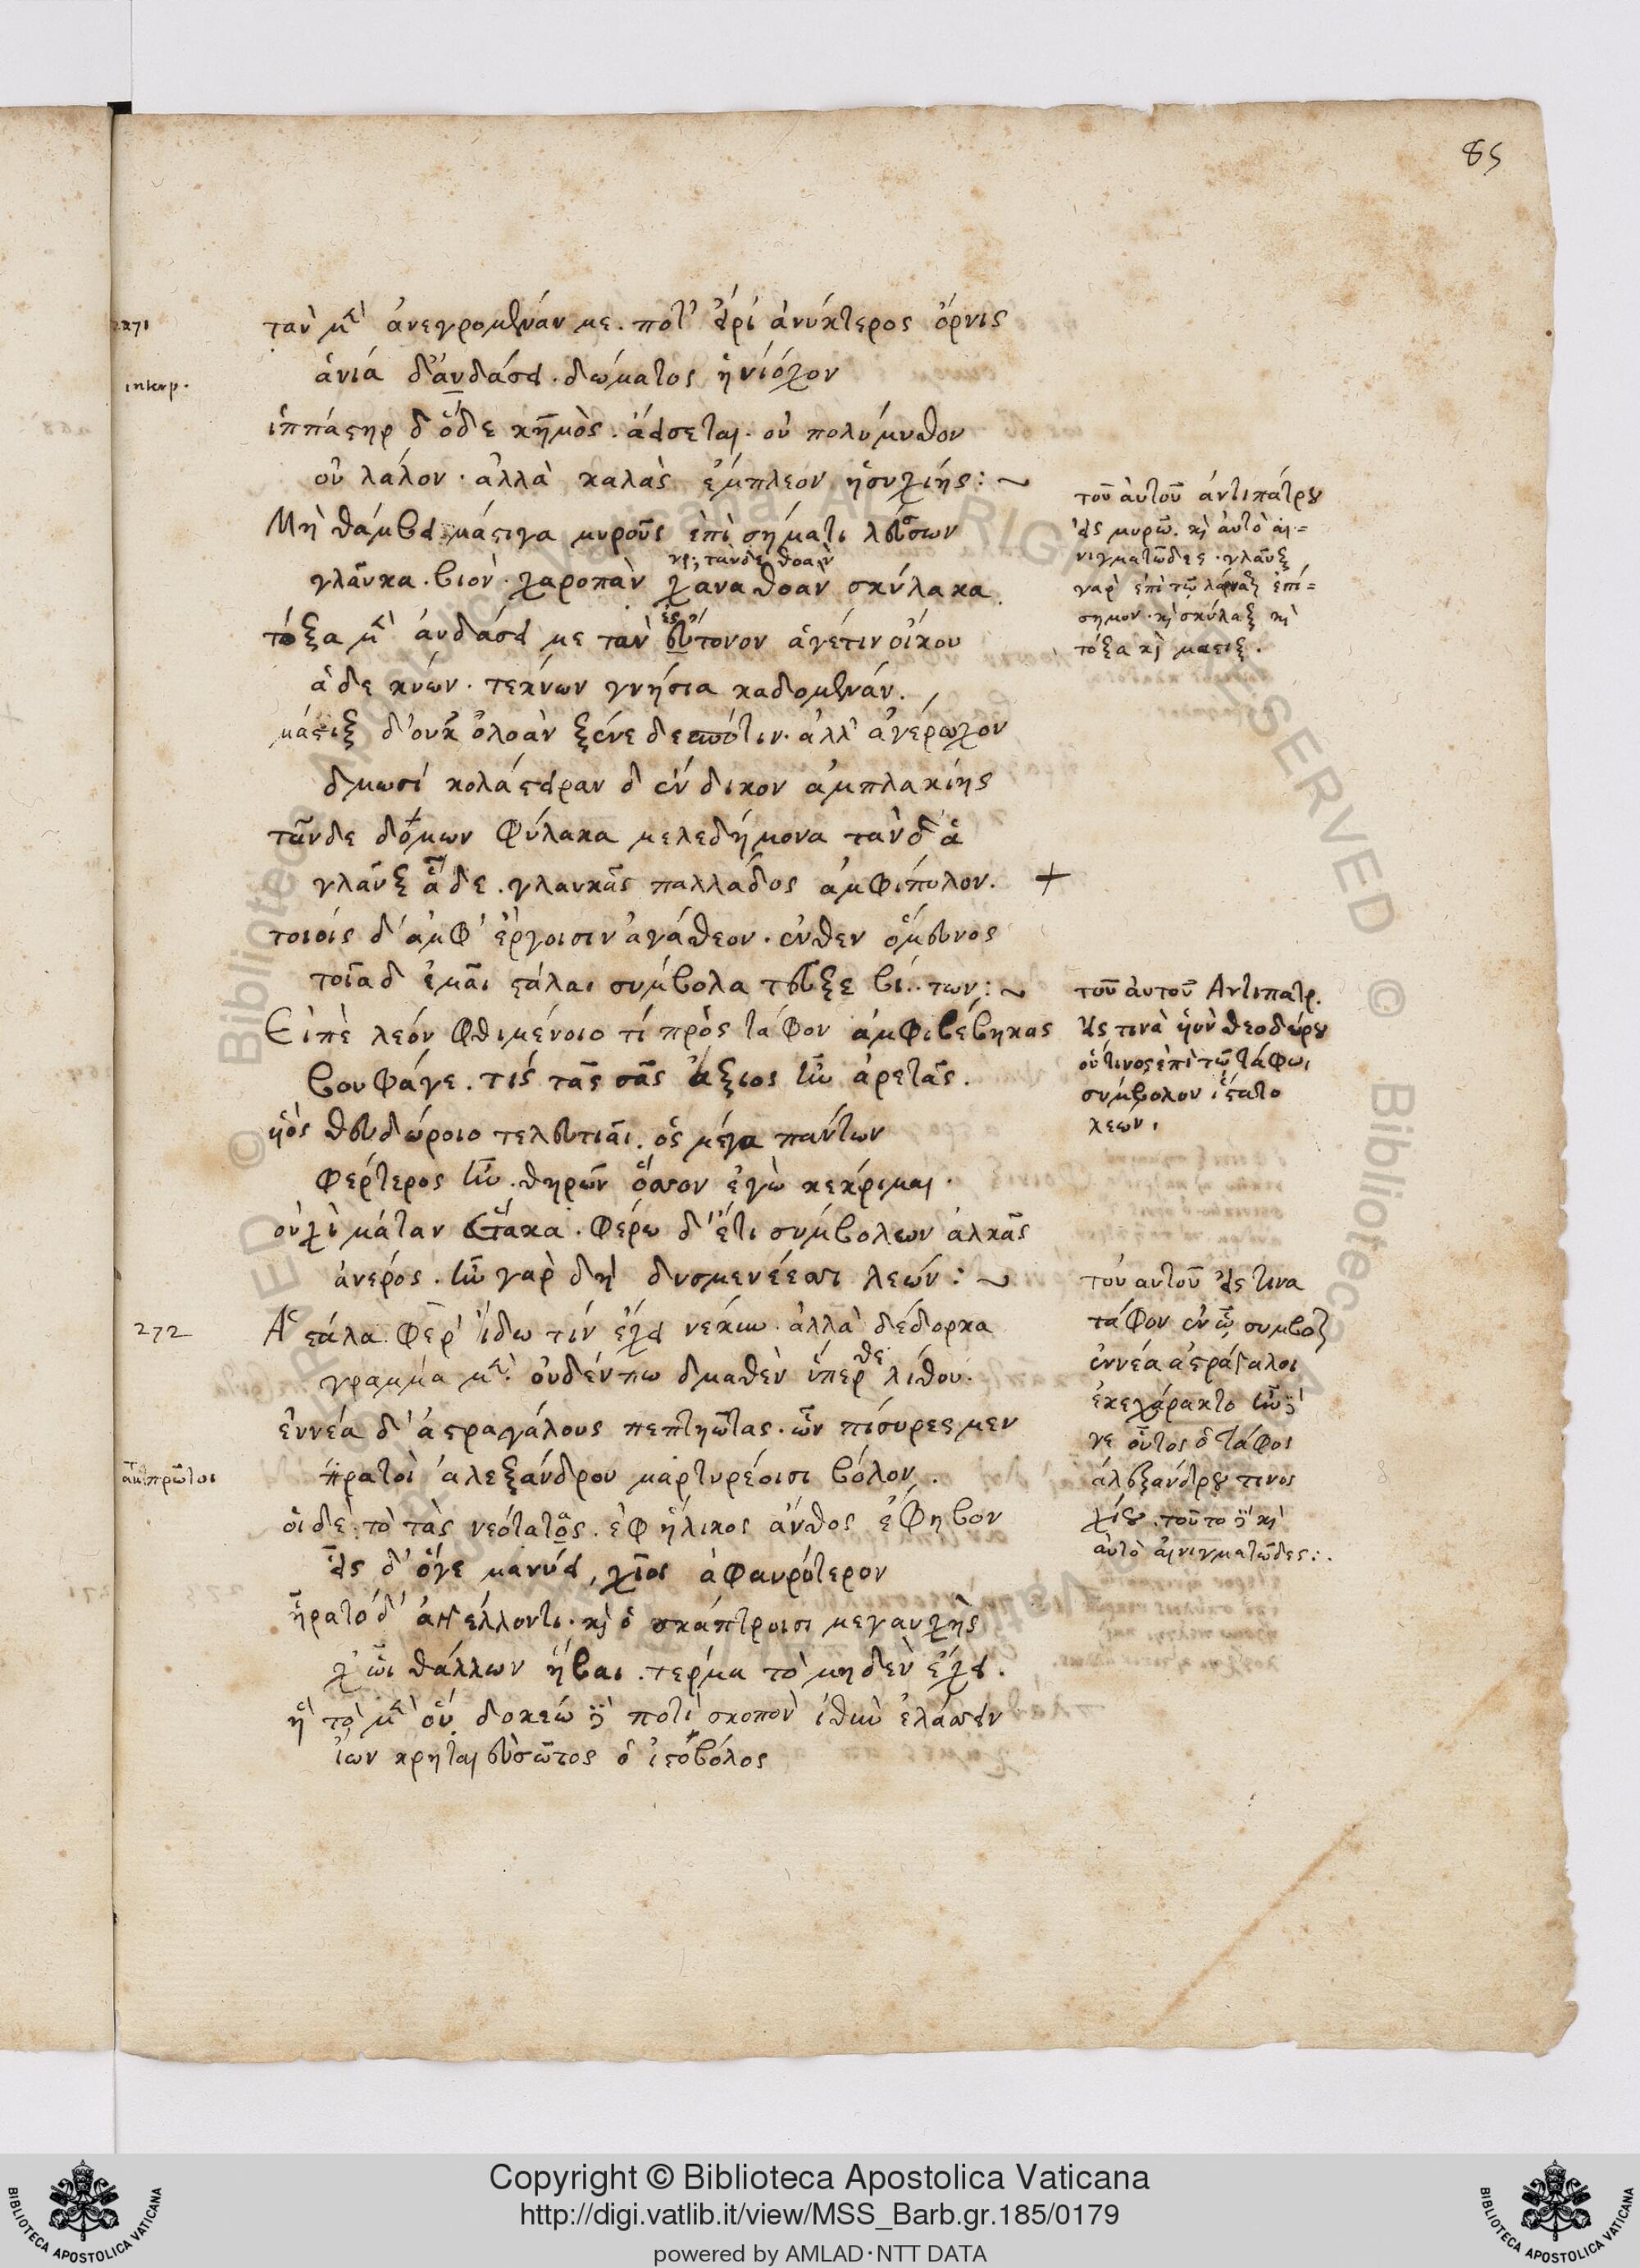 85
2271
τὰν μὲν ἀνεγρομέναν με ποτ' εἴρι' ἀνύκτερος ὄρνις
interp.
ἁνία δ' αὐδάσει δώματος ἡνίοχον
ἱππαστὴρ δ' ὅδε κημὸς ἀείσεται οὐ πολύμυθον
οὐ λάλον ἀλλὰ καλᾶς ἔμπλεον ἡσυχίης :~
Μὴ θάμβει μάστιγα μυροῦς ἐπὶ σήματι λεύσσων
γρ; τάνδε θοὰν
γλαῦκα βιὸν χαροπὰν χᾶνα θοὰν σκύλακα
τόξα μὲν αὐδάσει με τὰν εὔτονον ἁγέτιν οἴκου
ἁ δὲ κύων τέκνων γνήσια καδομέναν
μάστιξ δ' οὐκ ὀλοὰν ξένε δεσπότιν ἀλλ' ἀγέρωχον
δμωσί κολάστειραν δ' ἔνδικον ἀμπλακίης
τᾶνδε δόμων φύλακα μελεδήμονα τὰν δ' ἁ
γλαῦξ ἅδε γλαυκᾶς παλλάδος ἀμφίπολον. +
τοιοῖς δ' ἀμφ' ἔργοισιν ἀγάθεον ἔνθεν ὅμευνος
τοῖα δ' ἐμᾶι στάλαι σύμβολα τεῦξε βί..των :~
Εἰπὲ λέον φθιμένοιο τί πρὸς τάφον ἀμφιβέβηκας
βουφάγε τίς τᾶς σᾶς ἄξιος ἦν ἀρετᾶς.
ὑὸς θευδώροιο τελευτίαι ὃς μέγα πάντων
φέρτερος ἦν θηρῶν ὅσσον ἐγὼ κέκριμαι.
οὐχὶ μάταν ἕστακα φέρω δ' ἔτι σύμβολων ἀλκᾶς
ἀνερός ἦν γὰρ δὴ δυσμενέεσσι λεών :~
272
Α στάλα φέρ' ἴδω τίν' ἔχει νέκυν ἀλλὰ δέδορκα
γράμμα μὲν οὐδέν πω δμαθὲν ὕπερθε λίθου.
ἐννέα δ' ἀστραγάλους πεπτηῶτας ὧν πίσυρες μεν
πρᾶτοι ἀλεξάνδρου μαρτυρέοισι βόλον.
οἱ δὲ τὸ τᾶς νεότατος ἐφήλικος ἄνθος ἔφηβον
εἷς δ' ὅγε μανύει χῖος ἀφαυρότερον
ἦρα τόδ' ἀγγέλλοντι καὶ ὁ σκάπτροισι μεγαυχὴς
χὠι θάλλων ἥβαι τέρμα τὸ μηδὲν ἔχει.
ἢ τὸ μὲν οὔ δοκέω δὲ ποτὶ σκοπὸν ἰθὺν ἐλάσσειν
ἰὸν κρηταιεὺς ὧτος ὁ ἰστοβόλος
τοῦ αὐτοῦ ἀντιπάτρου
εἰς μυρώ. καὶ αὐτὸ αἰ=
νιγματῶδες. γλαῦξ
γὰρ ἐπὶ τῷ λάρναξ ἐπί=
σημον. καὶ σκύλαξ καὶ
τόξα καὶ μάστιξ.
τοῦ αὐτοῦ Αντιπατρ.
εἰς τινὰ ὑὸν θεοδώρου
οὗτινος ἐπὶ τῷ τάφωι
σύμβολον ἵστατο
λεών.
τοῦ αυτοῦ εἰς τινα
τάφον ἐν ᾧ συμβολ
ἐννέα ἀστράγαλοι
ἐκεχάρακτο ἦν δέ
γε οὗτος ὁ τάφος
ἀλεξάνδρου τινος
χίου. τοῦτο δὲ καὶ
αὐτὸ αἰνιγματῶδες :.
Copyright © Biblioteca Apostolica Vaticana
http://digi.vatlib.it/view/MSS_Barb.gr.185/0179
powered by AMLAD·NTT DATA
BIBLIOTECA APOSTOLICA VATICANA
BIBLIOTECA APOSTOLICA VATICANA